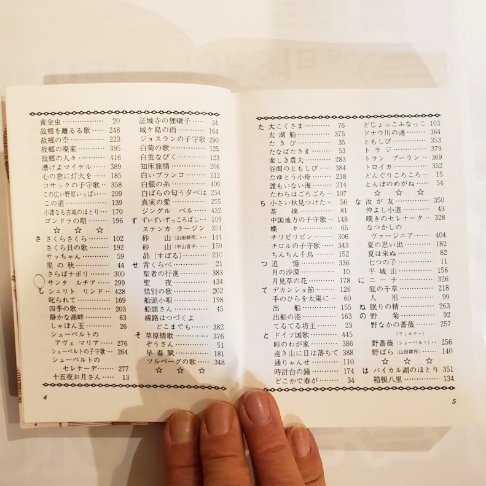 黄金虫 20
故郷を離るる歌 248
故郷の空 223
故郷の廃家 395
故郷の人々 416
漕げよマイケル 389
心の窓に灯火を 185
コサックの子守歌 358
この広い野原いっぱい 209
この道 139
小諸なる古城のほとり 170
ゴンドラの唄 196
☆ ☆ ☆
さ さくらさくら 44
さくら貝の歌 192
サッちゃん 59
里の秋 44
さらばナポリ 300
サンタ ルチア 299
シェリト リンド 428
叱られて 169
四季の歌 203
静かな湖畔 332
しゃぼん玉 26
シューベルトの
アヴェ マリア 276
シューベルトの子守歌 264
シューベルトの
セレナーデ 277
十五夜お月さん 13
4
証城寺の狸囃子 24
城ケ島の雨 164
ジョスランの子守歌 290
白菊の歌 125
白雲なびく 123
知床旅情 206
白いブランコ 212
白銀の糸 400
白ばらの匂う夕べは
真実の愛 255
ジングル ベル 442
す ずいずいずっころばし 17
ステンカ ラージン 354
砂山 (山田耕筰) 144
砂山 (中山晋平) 159
晶 [すばる] 210
☆ ☆ ☆
せ 背くらべ 21
聖者の行進 383
聖夜 434
惜別の歌 202
船頭小唄 198
船頭さん 45
線路はつづくよ
どこまでも 382
そ 草原情歌 376
ぞうさん 59
早春賦 181
ソルベーグの歌 348
☆ ☆ ☆
た 大こくさま 76
太湖船 375
たきび 35
たなばたさま 53
楽しき農夫 283
谷間のともしび 392
たゆとう小舟 238
誰もいない海 214
たわらはごろごろ 107
ち 小さい秋見つけた 56
茶摘 81
中国地方の子守歌 148
蝶々 65
チリビリビン 306
チロルの子守歌 343
ちんちん千鳥 152
つ 追憶 336
月の沙漠 10
月見草の花 178
て デカンショ節 126
手のひらを太陽に 60
出船 201
出船の港 162
てるてる坊主 23
と ドイツ国歌 445
峠のわが家 386
遠き山に日は落ちて 388
通りゃんせ 110
時計台の鐘 174
どこかで春が 34
どじょっこふなっこ 103
ドナウ川の漣 364
ともしび 353
トラジ 379
トラン ブーラン 369
トロイカ 352
どんぐりころころ 15
とんぼのめがね 54
☆ ☆ ☆
な 汝が友 240
仲よし小道 43
嘆きのセレナータ 308
なつかしの
ヴァージニア 404
夏の思い出 182
夏は来ぬ 82
七つの子 11
平城山 156
に 〃 〃
庭の千草 218
人形 99
ね 眠りの精 263
の 野菊 92
野なかの薔薇 257
(ウェルナー)
野薔薇 (シューベルト) 256
野ばら (山田耕筰) 140
☆ ☆ ☆
は バイカル湖のほとり 351
箱根八里 134
5